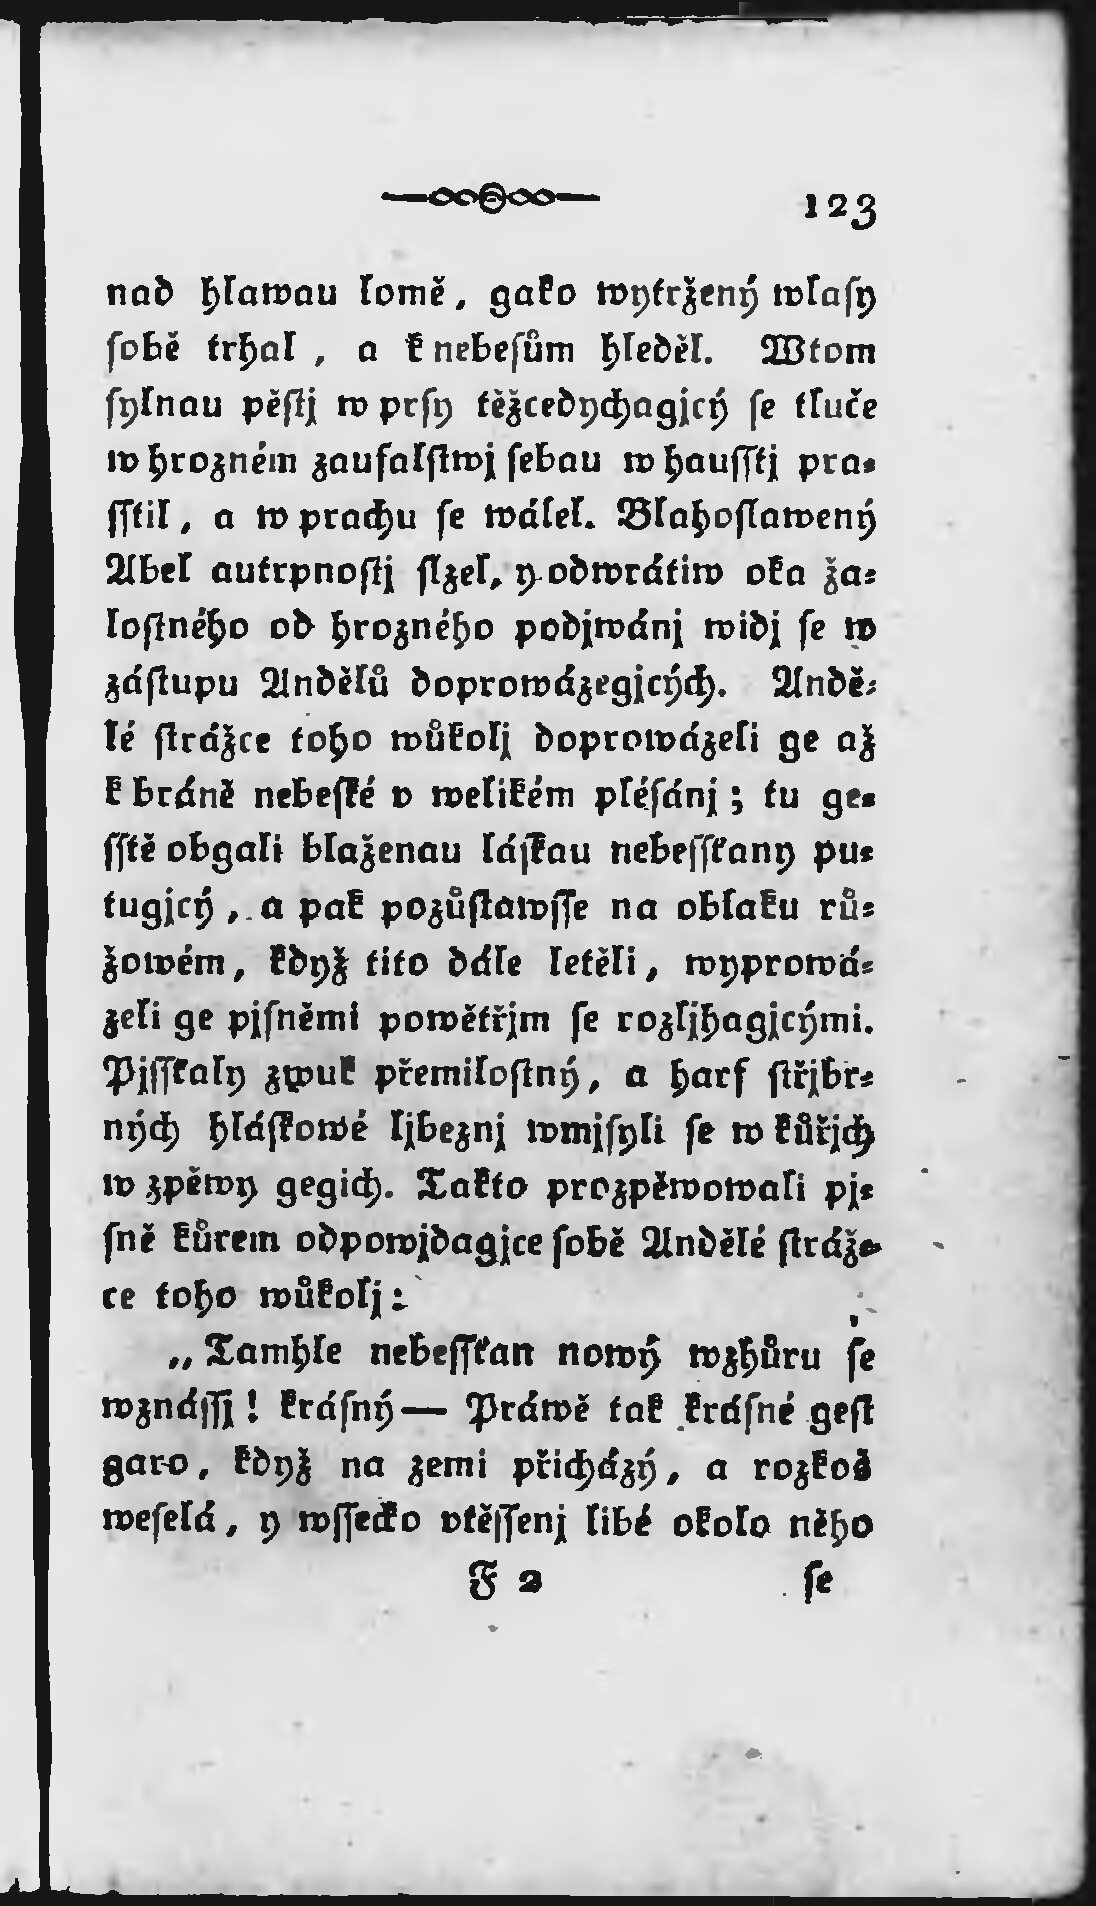 123
nad hlawau lomě, gako wytržený wlaſy
ſobě trhal, a k nebeſům hleděl. Wtom
ſylnau pěſtj w prſy těžcedychagjcý ſe tluče
w hrozném zaufalſtwj ſebau w hauſſtj pra-
ſſtil, a w prachu ſe wálel. Blahoſlawený
Abel autrpnoſtj ſlzel, y odwrátiw oka ža-
loſtného od hrozného podjwánj widj ſe w
záſtupu Andělů doprowázegjcých. Andě-
lé ſtrážce toho wůkolj doprowázeli ge až
k bráně nebeſké v welikém pléſánj; tu ge-
ſſtě obgali blaženau láſkau nebeſſťany pu-
tugjcý, a pak pozůſtawſſe na oblaku rů-
žowém, když tito dále letěli, wyprowá-
zeli ge pjſněmi powětřjm ſe rozljhagjcými.
Pjſſťaly zwuk přemiloſtný, a harf ſtřjbr-
ných hláſkowé ljbeznj wmjſyli ſe w kůřjch
w zpěwy gegich. Takto prozpěwowali pj-
ſně kůrem odpowjdagjce ſobě Andělé ſtráž-
ce toho wůkolj:
„Tamhle nebeſſťan nowý wzhůru ſe
wznáſſj! kráſný— Práwě tak kráſné geſt
garo, když na zemi přicházý, a rozkoš
weſelá, y wſſecko vtěſſenj libé okolo něho
F 2 ſe